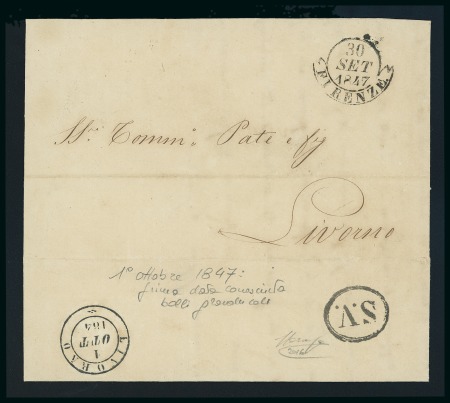 30
SET
1847
FIRENZE
Sс. Tomm. Pate e fy
Livorno
1° ottobre 1847:
prima data conosciuta
bolli
S.V.
LIVORNO
1
OTT
184